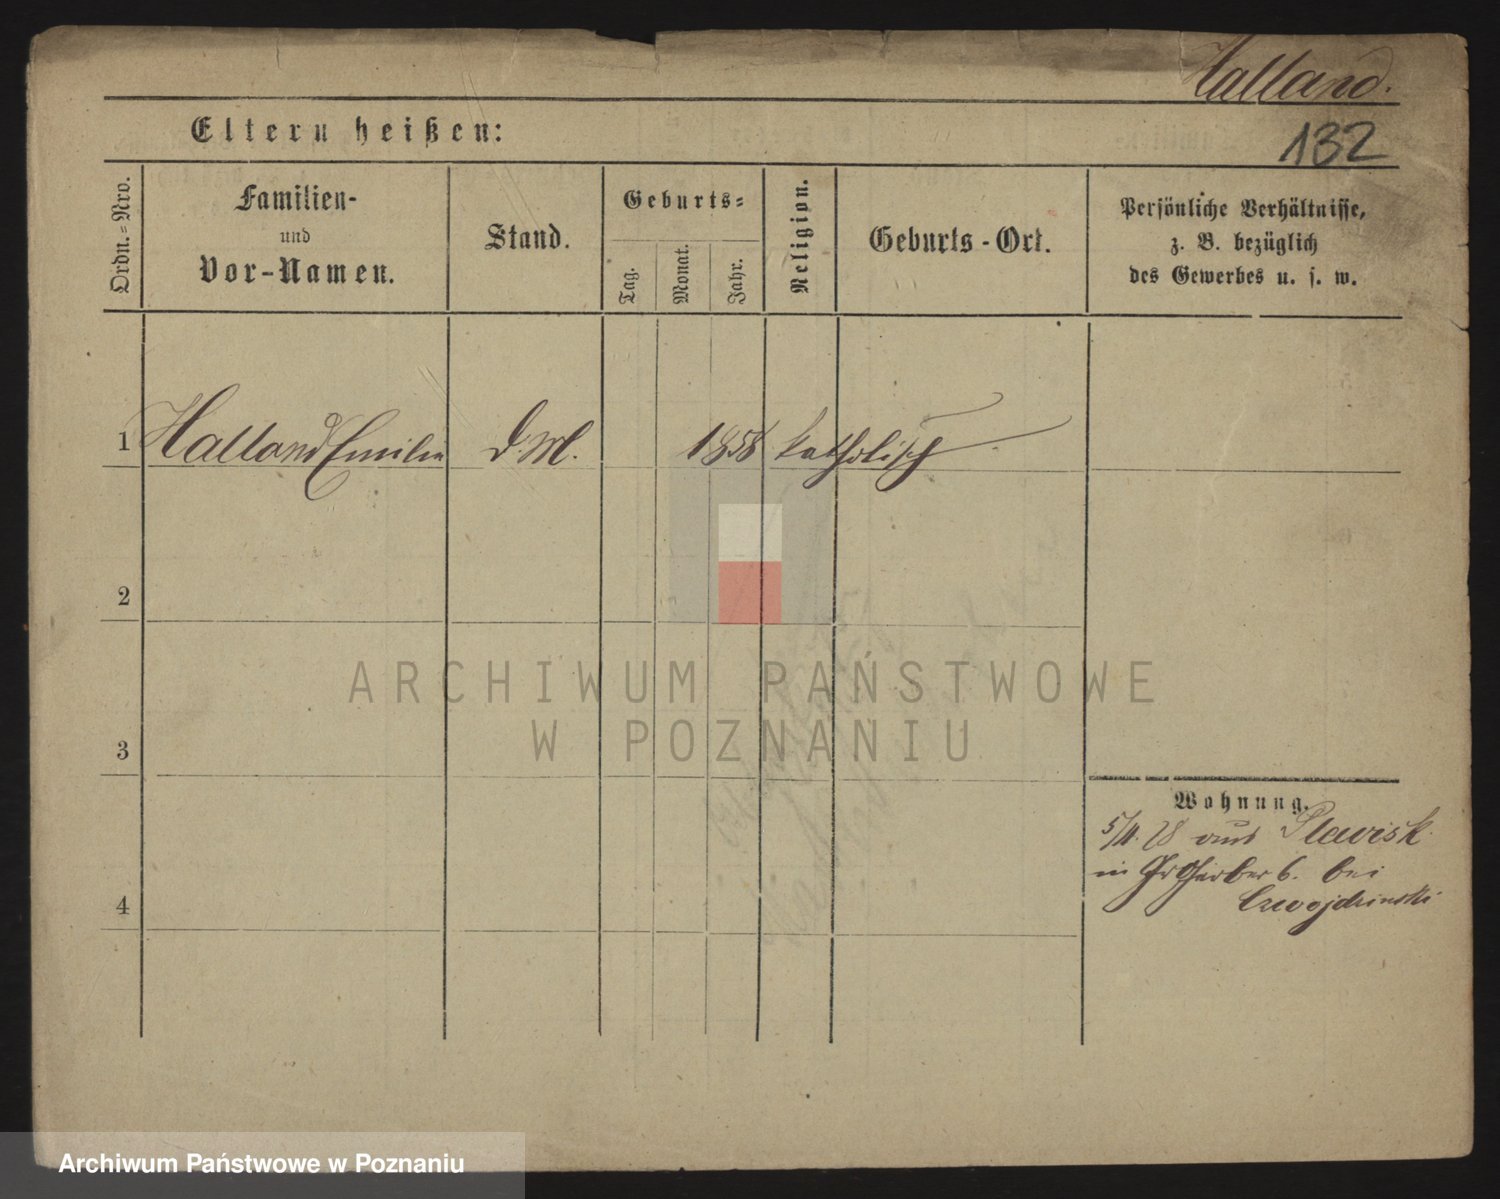 Halland.
Eltern heißen:
132
Ordn.-Nro.
Familien-
und
Vor-Namen.
Stand.
Geburts-
Tag.
Monat.
Jahr.
Religion.
Geburts-Ort.
Persönliche Verhältnisse,
z. B. bezüglich
des Gewerbes u. s. w.
1 Halland Emilie D.M. 1858 katholisch
2
3
4
ARCHIWUM PAŃSTWOWE
W POZNANIU
Wohnung.
5/4. 78 aus
in Gr Gerber 6. bei
Czwojdzinski
Archiwum Państwowe w Poznaniu